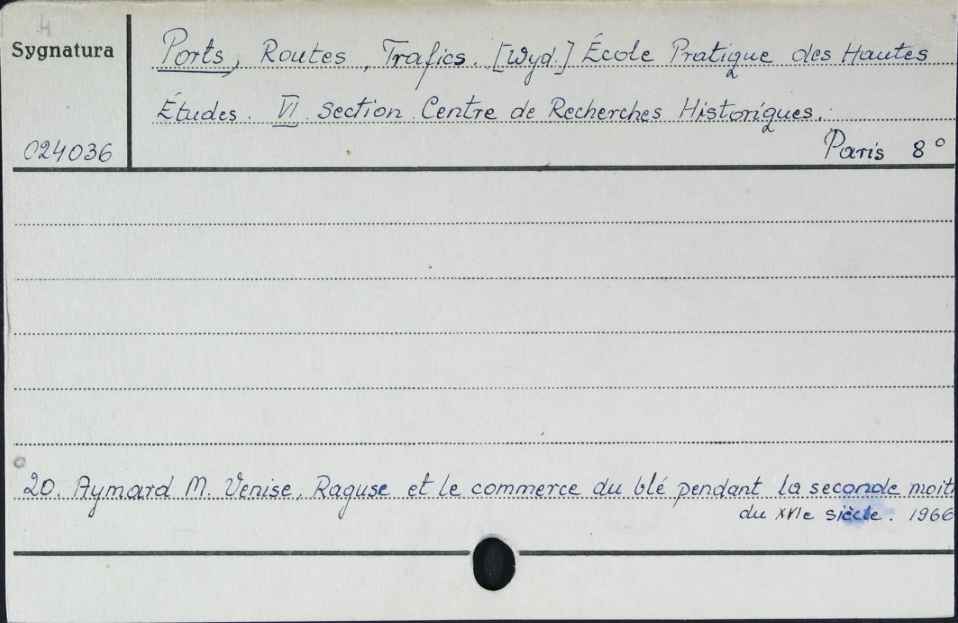 Sygnatura
Ports, Routes, Trafics. [Wyd.] École Pratique des Hautes
Études. VI Section Centre de Recherches Historiques.
024036
Paris 8°
20. Aymard M. Venise, Raguse et le commerce du blé pendant la seconde moit
du XVIe siècle. 1966